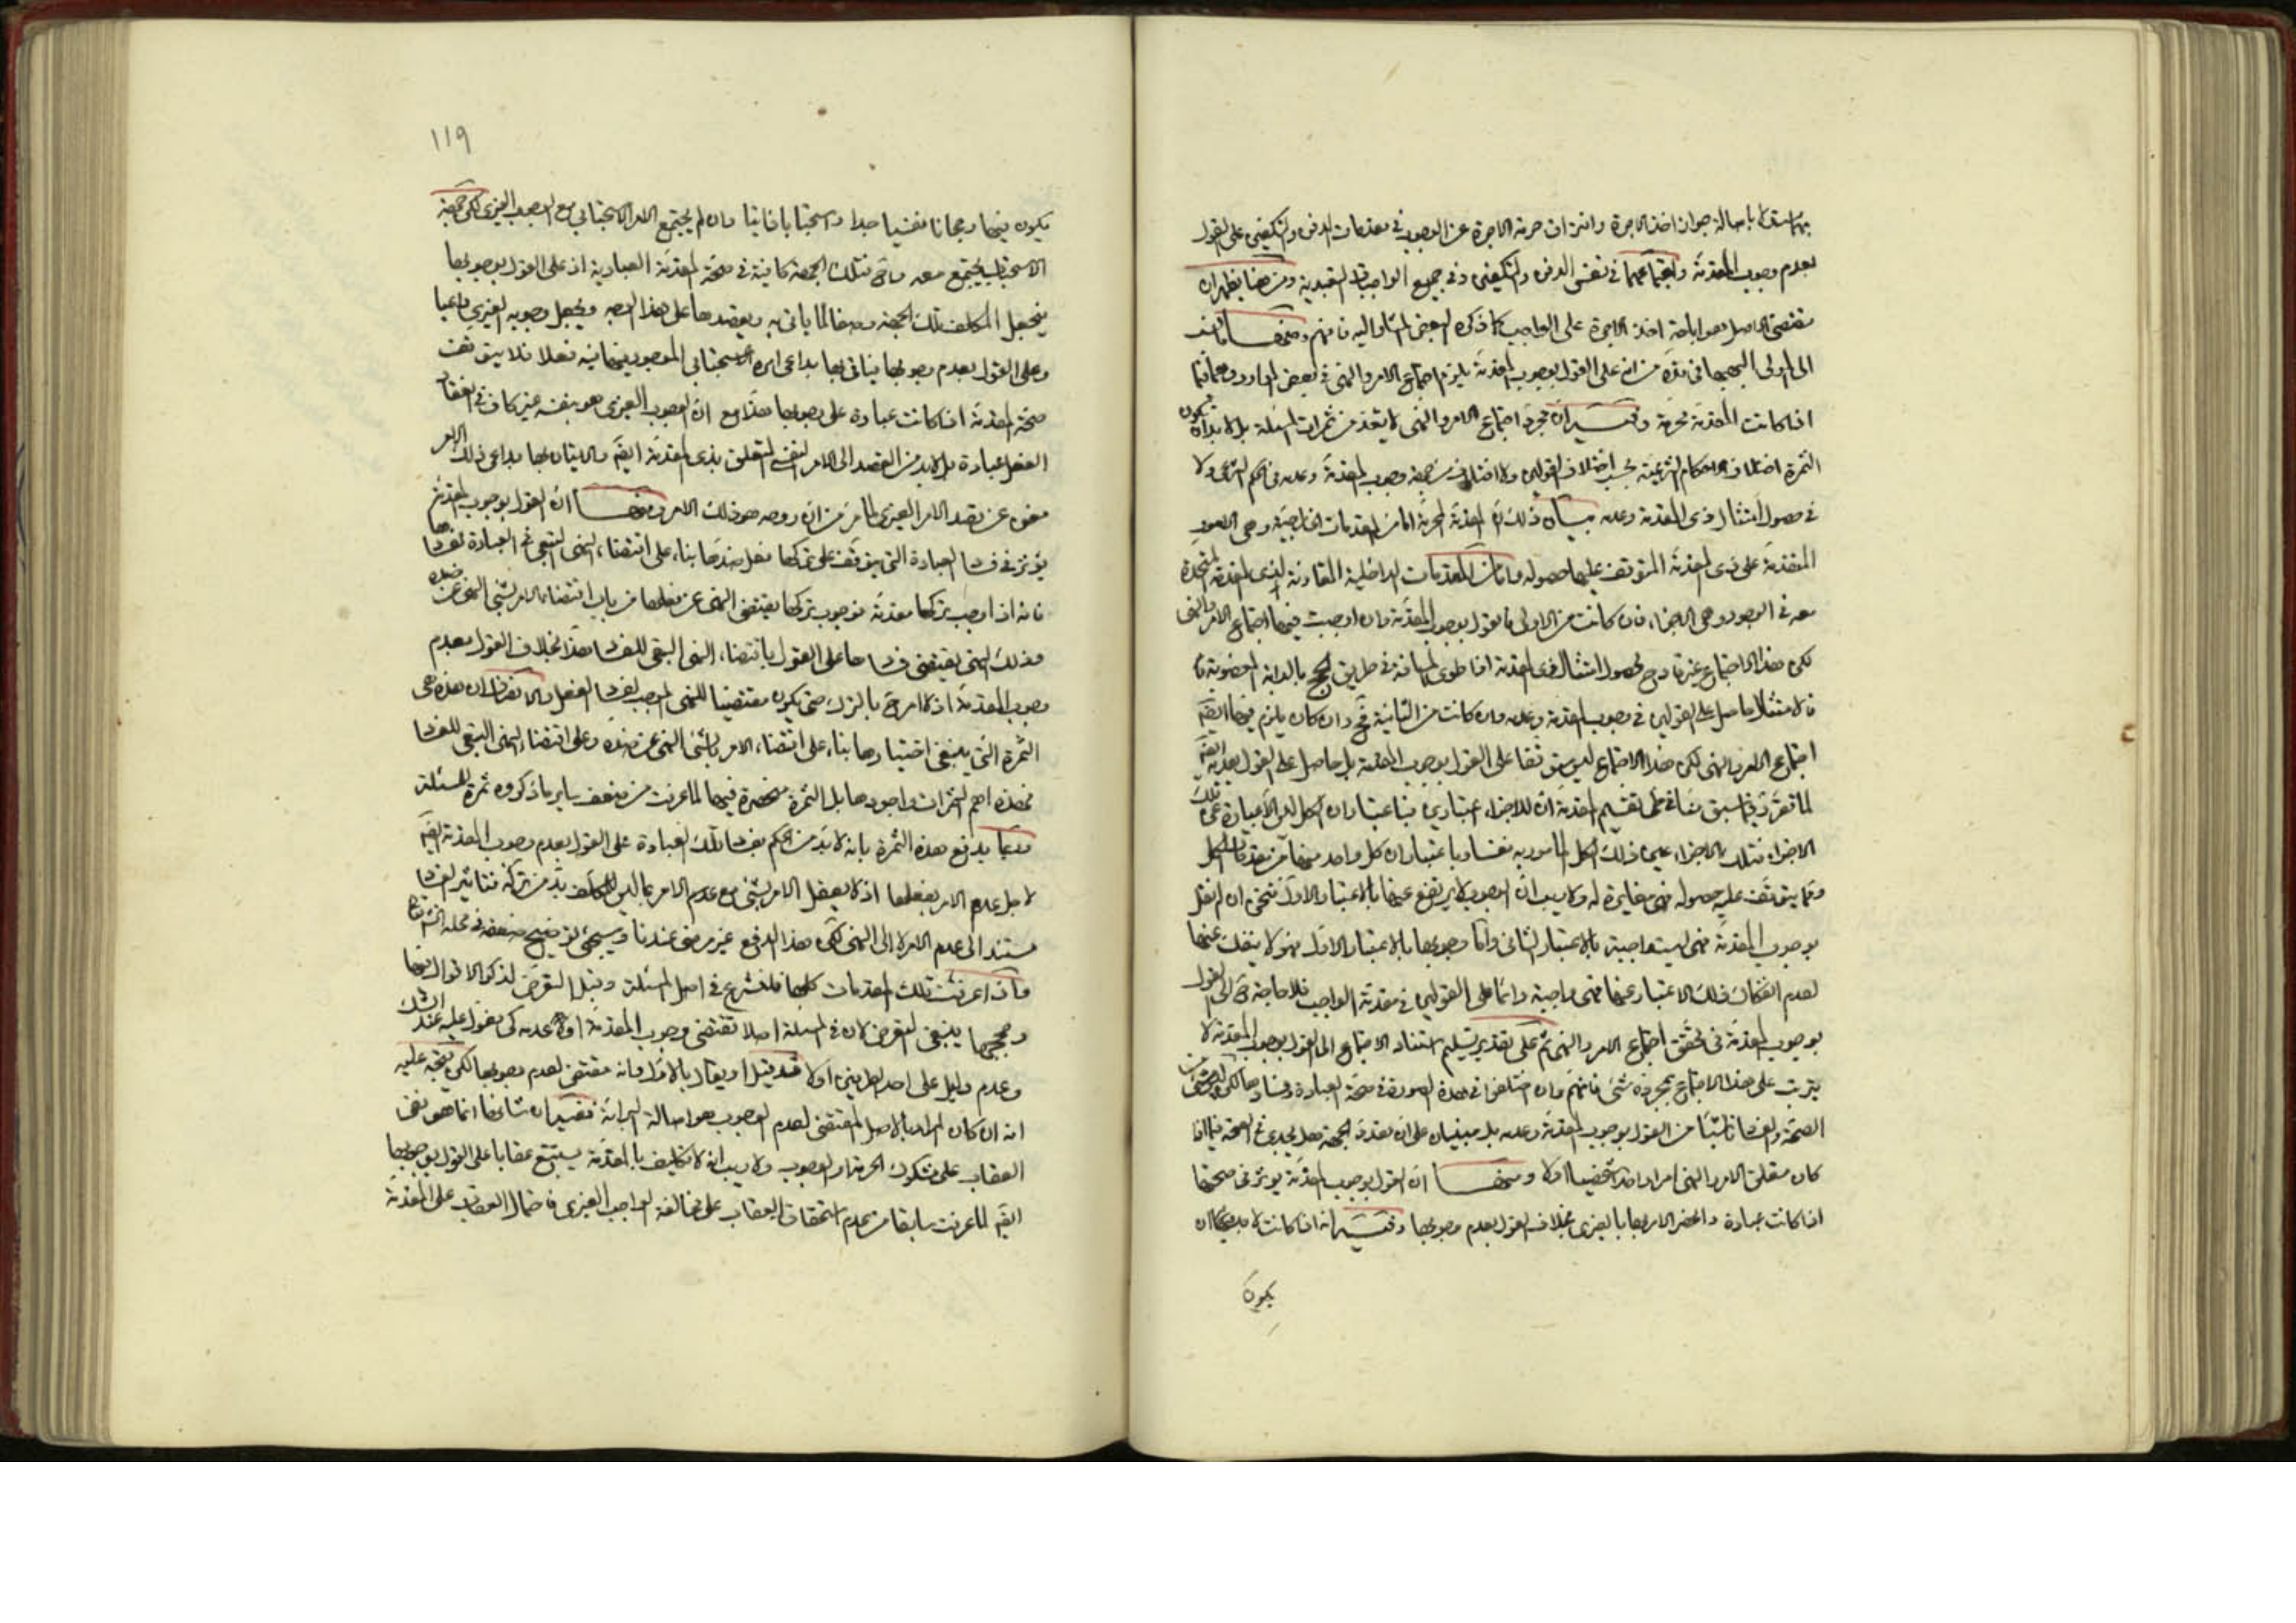 باصالة جواز اخذ الاجرة وانتزاف حرمة الاجرة عن الوجوب في مقدمات الدفن والتكفين على القول
بعدم وجوب المقدمة في نفس الدفن والتكفين وفي جميع الواجبات التعبدية ومن هنا يظهر ان
مقتضى الاصل هو اباحة اخذ الاجرة على الواجب كما ذكره البعض المشار اليه فافهم ومنها
الى المولى البهبهاني قده من انه على القول بوجوب المقدمة يلزم اجتماع الامر والنهى في بعض الموارد
اذا كانت المقدمة محرمة وفيه ان مجرد اجتماع الامر والنهى لا يعد من ثمرات المسئلة بل لا بد ان يكون
الثمرة اختلاف الاحكام الشرعية بحسب اختلاف القولين ولا اختلاف من جهة وجوب المقدمة وعدمه في الحكم الشرعى ولا
في حصول امتثال ذى المقدمة وعدمه بيان ذلك ان المقدمة المحرمة اما من المقدمات الخارجية وهى الامور
المتقدمة على ذى المقدمة المتوقف عليها حصوله واما من المقدمات الداخلية المقارنة لذى المقدمة المتحدة
معه في الوجود وهى الاجزاء فان كانت من الاولى فالقول بوجوب المقدمة وان اوجب فيها اجتماع الامر والنهى
لكن هذا الاجتماع غير قادح لحصول امتثال ذى المقدمة اذا طوى المسافة في طريق الحج بالدابة المغصوبة
فالامتثال حاصل على القولين في وجوب المقدمة وعدمه وان كانت من الثانية فح وان كان يلزم فيها ايضا
اجتماع الامر والنهى لكن هذا الاجتماع ليس متوقفا على القول بوجوب المقدمة بل حاصل على القول بعدمه ايضا
لما تقرر فيما سبق منا في تقسيم المقدمة ان للاجزاء اعتبارين فباعتبار ان الكل ليس الا عبارة عن تلك
الاجزاء فتلك الاجزاء عين ذلك الكل المأمور به نفسا وباعتبار ان كل واحد منها مقدمات الكل
ومما يتوقف عليه حصوله فهى مغايرة له ولا ريب ان الوجوب لا يرتفع عنها بالاعتبار الاول فنحن ان لم نقل
بوجوب المقدمة فهى ليست واجبة بالاعتبار الثانى واما وجوبها بالاعتبار الاول فهو لا ينفك عنها
لعدم انفكاك ذلك الاعتبار عنها فهى واجبة دائما على القولين في مقدمة الواجب فلا حاجة ح الى القول
بوجوب المقدمة في تحقق اجتماع الامر والنهى ثم على تقدير تسليم استناد الاجتماع الى القول بوجوب المقدمة لا
يترتب على هذا الاجتماع بمجرده شئ فانهم وان اختلفوا في هذه الصورة في صحة العبادة وفسادها لكن
الصحة والفساد من القول بوجوب المقدمة وعدمه بل مبنيان على ان تعدد الجهة هل يجدى في الصحة فيما اذا
كان متعلق الامر والنهى امرا واحدا شخصيا اولا ومنها ان القول بوجوب المقدمة يؤثر في صحتها
اذا كانت عبادة وانحصر الامر بها بالغيرى بخلاف القول بعدم وجوبها وفيه انه اذا كانت لا بد ان
يكون
١١٩
يكون فيها رجحانا نفسيا جدا واستحبابا ذاتيا وان لم يجتمع الامر الاستحبابى مع الوجوب الغيرى لكن جهة
الاستحباب يجتمع معه وح فتلك الجهة كافية في صحة المقدمة العبادية اذ على القول بوجوبها
يجعل المكلف تلك الجهة وصفا لما يأتى به ويقصدها على هذا الوجه ويجعل وجوبه الغيرى داعيا
وعلى القول بعدم وجوبها فيأتى بها بداعى امره الاستحبابى الموجود فيها فعلا فلا يتوقف
صحة المقدمة اذا كانت عبادة على وجوبها هذا مع ان الوجوب الغيرى هو بنفسه غير كاف في انعقاد
الفعل عبادة بل لا بد من القصد الى الامر النفسى المتعلق بذى المقدمة ايضا والاتيان بها بداعى ذلك الامر
مغن عن قصد الامر الغيرى لما مر من ان روحه هو ذلك الامر ومنها ان القول بوجوب المقدمة
يؤثر في فساد العبادة التى يتوقف على تركها فعل ضدها بناء على اقتضاء النهى التبعى في العبادة لفسادها
فانه اذا وجب تركها مقدمة فوجوب تركها يقتضى النهى عن فعلها من باب اقتضاء الامر بالشئ النهى عن ضده
فذلك النهى يقتضى فسادها على القول باقتضاء النهى التبعى للفساد هذا بخلاف القول بعدم
وجوب المقدمة اذ لا امر ح بالترك حتى يكون مقتضيا للنهى الموجب لفساد الفعل والانصاف ان هذه هى
الثمرة التى ينبغى اختيارها بناء على اقتضاء الامر بالشئ النهى عن ضده وعلى اقتضاء النهى التبعى للفساد
فهذه اهم الثمرات واجودها بل الثمرة منحصرة فيها لما عرفت من ضعف ساير ما ذكروه ثمرة للمسئلة
وربما يدفع هذه الثمرة بانه لا بد من الحكم بفساد تلك العبادة على القول بعدم وجوب المقدمة ايضا
لاجل عدم الامر بفعلها اذ لا يعقل الامر بشئ مع عدم الامر بما ليس للمكلف بد من تركه فتأثير الفساد
مستند الى عدم الامر لا الى النهى لكن هذا الدفع غير مرضى عندنا وسيجئ توضيح ضعفه في محله انشاء الله
واذا عرفت تلك المقدمات كلها فلنشرع في اصل المسئلة وقبل التعرض لذكر الاقوال فيها
وحججها ينبغى التعرض لان في المسئلة اصلا تقتضى وجوب المقدمة او عدمه كى يعول عليه عند الشك
وعدم دليل على احد الطرفين اولا قد يقال بالاول وانه مقتض لعدم وجوبها لكن يتجه عليه
انه ان كان المراد بالاصل المقتضى لعدم الوجوب هو اصالة البرائة ففيه ان شانها انما هو نفى
العقاب على مشكوك الحرمة او الوجوب ولا ريب انه لا تكليف بالمقدمة يستتبع عقابا على القول بوجوبها
ايضا لما عرفت سابقا من عدم استحقاق العقاب على مخالفة الواجب الغيرى فاحتمال العقاب على المقدمة